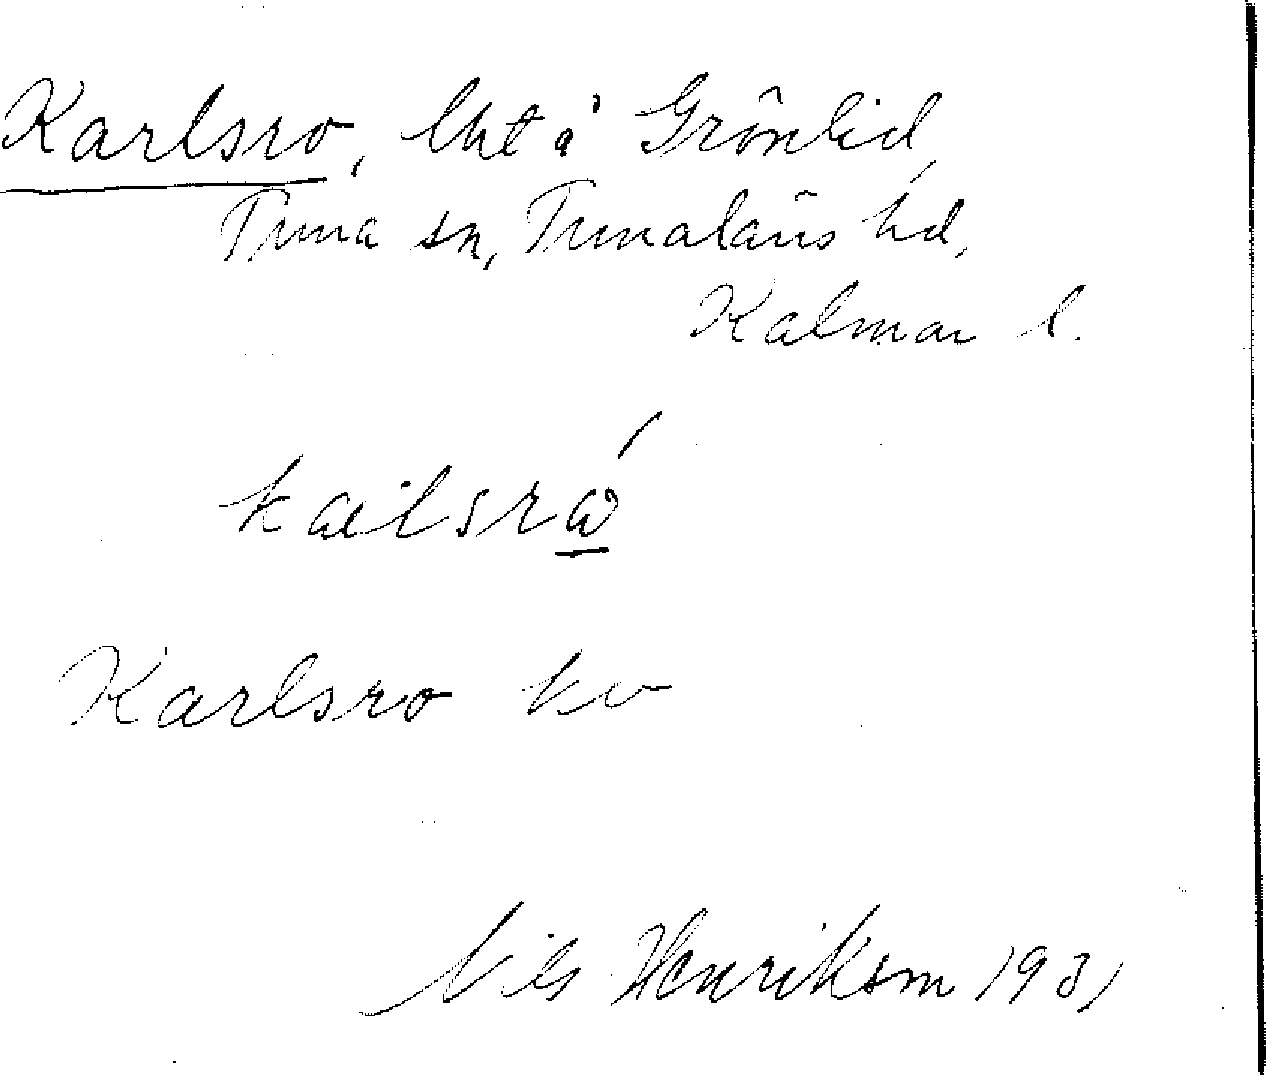 Karlsro, lht å Grönlid,
Tuna sn, Tunaläns hd,
Kalmar l.
Karlsro kv
Nils Henrikson 1931